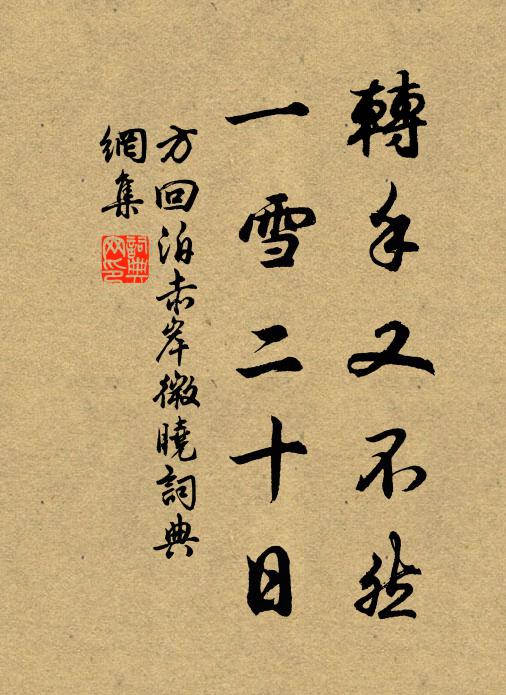 轉手又不然
一雪二十日
方回泊赤岸微曉詞典
網集
詞典
网印